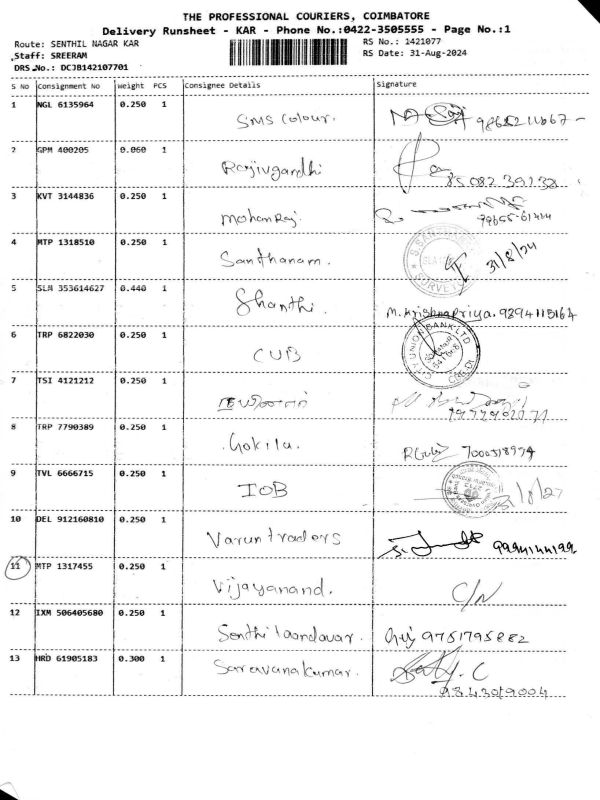 THE PROFESSIONAL COURIERS, COIMBATORE
Delivery Runsheet - KAR - Phone No.:0422-3505555 - Page No.:1
Route: SENTHIL NAGAR KAR
RS No.: 1421077
Staff: SREERAM
RS Date: 31-Aug-2024
DRS No.: DCJB142107701
S No Consignment No Weight PCS Consignee Details Signature
1 NGL 6135964 0.250 1 SMS Colour.
2 GPM 400205 0.060 1 Rajivgandhi
3 KVT 3144836 0.250 1 Mohanraj
4 MTP 1318510 0.250 1 Santhanam. 31/8/24
5 SLM 353614627 0.440 1 Shanthi. M. Krishnapriya. 9894115164
6 TRP 6822030 0.250 1 CUB CITY UNION BANK LTD
7 TSI 4121212 0.250 1
8 TRP 7790389 0.250 1 Gokila
9 TVL 6666715 0.250 1 IOB
10 DEL 912160810 0.250 1 Varun traders
11 MTP 1317455 0.250 1 Vijayanand. C/N
12 IXM 506405680 0.250 1 Senthilaandavar. 9751795882
13 HRD 61905183 0.300 1 Saravanakumar.